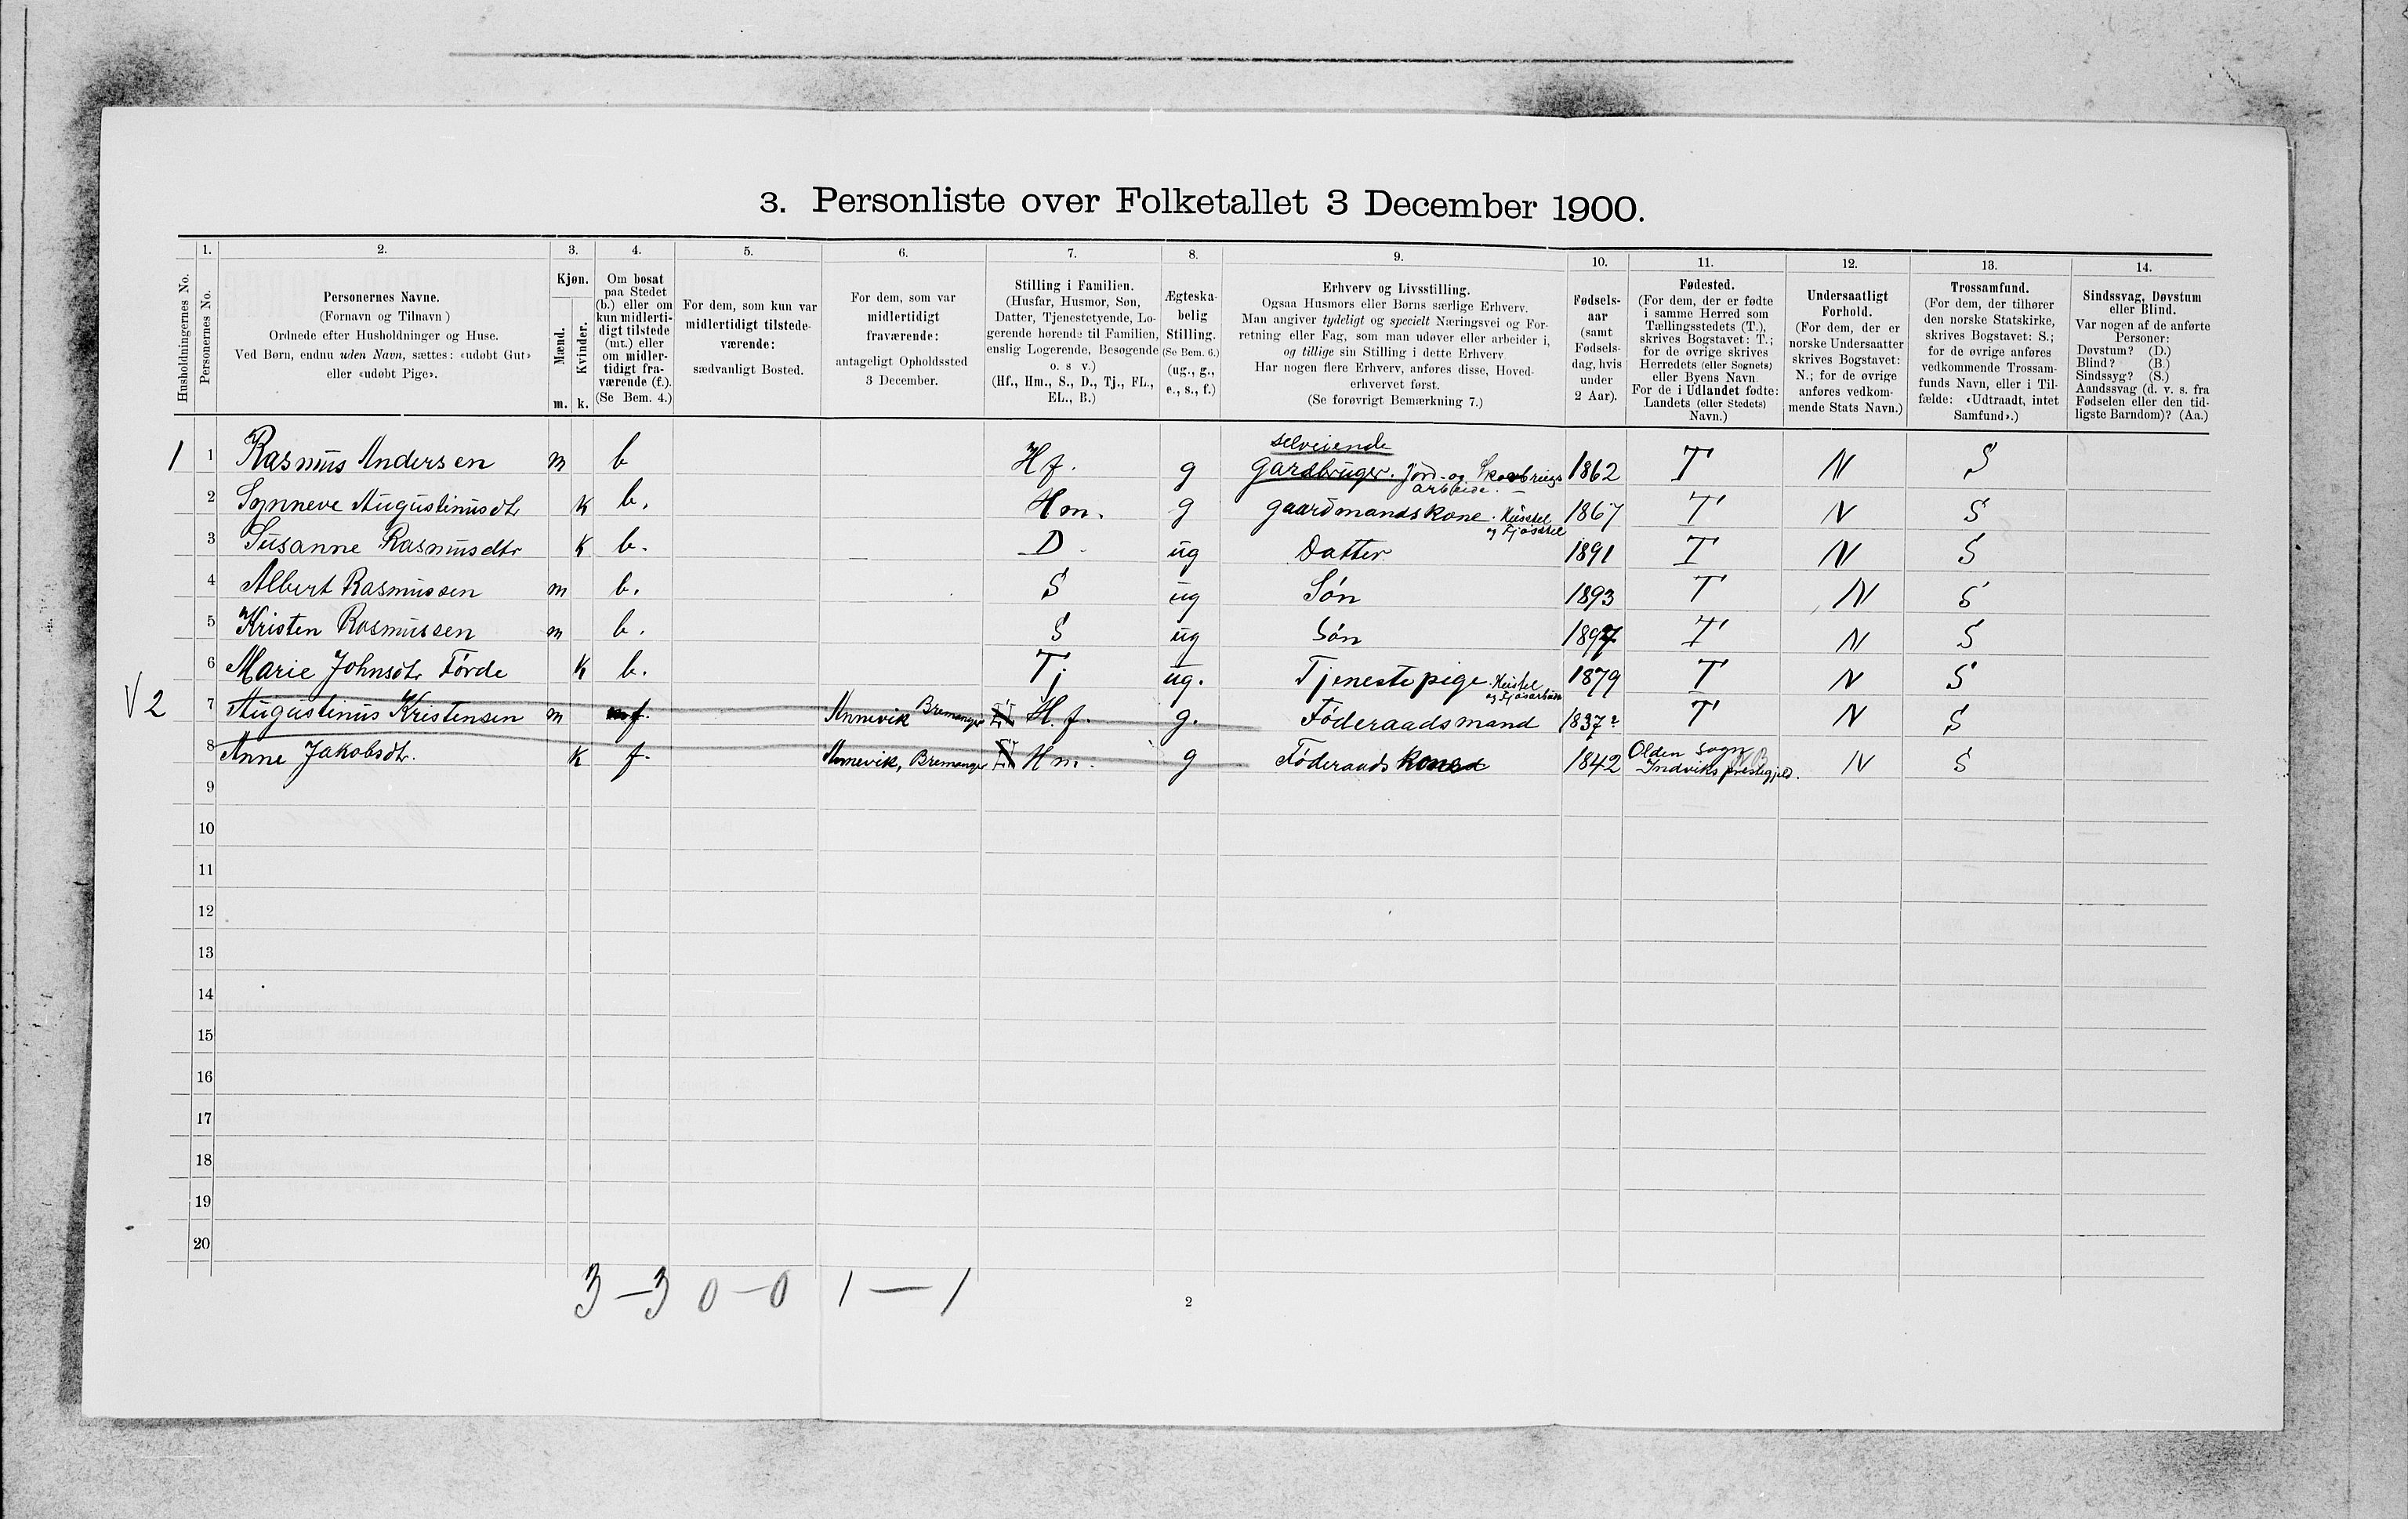 3. Personliste over Folketallet 3 December 1900.
Husholdningernes No.
1.
Personernes No.
2.
Personernes Navne.
(Fornavn og Tilnavn)
Ordnede efter Husholdninger og Huse.
Ved Børn, endnu uden Navn, sættes: «udøbt Gut»
eller «udøbt Pige».
3.
Kjøn.
Mænd.
Kvinder.
m. k.
4.
Om bosat
paa Stedet
(b.) eller om
kun midlerti-
digt tilstede
(mt.) eller
om midler-
tidigt fra-
værende (f.).
(Se Bem. 4.)
5.
For dem, som kun var
midlertidigt tilstede-
værende:
sædvanligt Bosted.
6.
For dem, som var
midlertidigt
fraværende:
antageligt Opholdssted
3 December.
7.
Stilling i Familien.
(Husfar, Husmor, Søn,
Datter, Tjenestetyende, Lo-
gerende hørende til Familien,
enslig Logerende, Besøgende
o. s v.)
(Hf., Hm., S., D., Tj., FL.,
EL., B.)
8.
Ægteska-
belig
Stilling.
(Se Bem. 6.)
(ug., g.,
e., s., f.)
9.
Erhverv og Livsstilling.
Ogsaa Husmors eller Børns særlige Erhverv.
Man angiver tydeligt og specielt Næringsvei og For-
retning eller Fag, som man udøver eller arbeider i,
og tillige sin Stilling i dette Erhverv
Har nogen flere Erhverv, anføres disse, Hoved-
erhvervet først.
(Se forøvrigt Bemærkning 7.)
10.
Fødsels-
aar
(samt
Fødsels-
dag, hvis
under
2 Aar).
11.
Fødested.
(For dem, der er fødte
i samme Herred som
Tællingsstedets (T.),
skrives Bogstavet: T.;
for de øvrige skrives
Herredets (eller Sognets)
eller Byens Navn
For de i Udlandet fødte:
Landets (eller Stedets)
Navn.)
12.
Undersaatligt
Forhold.
(For dem, der er
norske Undersaatter
skrives Bogstavet:
N.; for de øvrige
anføres vedkom-
mende Stats Navn.)
13.
Trossamfund.
(For dem, der tilhører
den norske Statskirke,
skrives Bogstavet: S.;
for de øvrige anføres
vedkommende Trossam-
funds Navn, eller i Til-
fælde: «Udtraadt, intet
Samfund».)
14.
Sindssvag, Døvstum
eller Blind.
Var nogen af de anførte
Personer:
Døvstum? (D.)
Blind? (B.)
Sindssyg? (S.)
Aandssvag (d. v. s. fra
Fødselen eller den tid-
ligste Barndom)? (Aa.)
selveiende
1 1 Rasmus Andersen m b Hf. g gardbruger. Jord- og Skovbrugs 1862 T N S
arbeide.
2 Synneve Augustinusdtr k b. Hm. g gaardmandskone. Husstel 1867 T N S
og Fjøsstel
3 Susanne Rasmusdtr k b. D. ug Datter 1891 T N S
4 Albert Rasmussen m b. S ug Søn 1893 T N S
5 Kristen Rasmussen m b. S ug Søn 1897 T N S
6 Marie Johnsdtr Førde k b. Tj ug. Tjenestepige. Husstel 1879 T N S
og Fjøsarbeide
V 2 7 Augustinus Kristensen m f. Annevik Bremanger H.f. g. Föderaadsmand 1837 T N S
8 Anne Jakobsdtr. k f. Annevik, Bremanger Hm. g Föderaads kone 1842 Olden Sogn N S
Indviks prestegjeld.
9
10
11
12
13
14
15
16
17
18
19
20
3 – 3 0 – 0 1 – 1
2